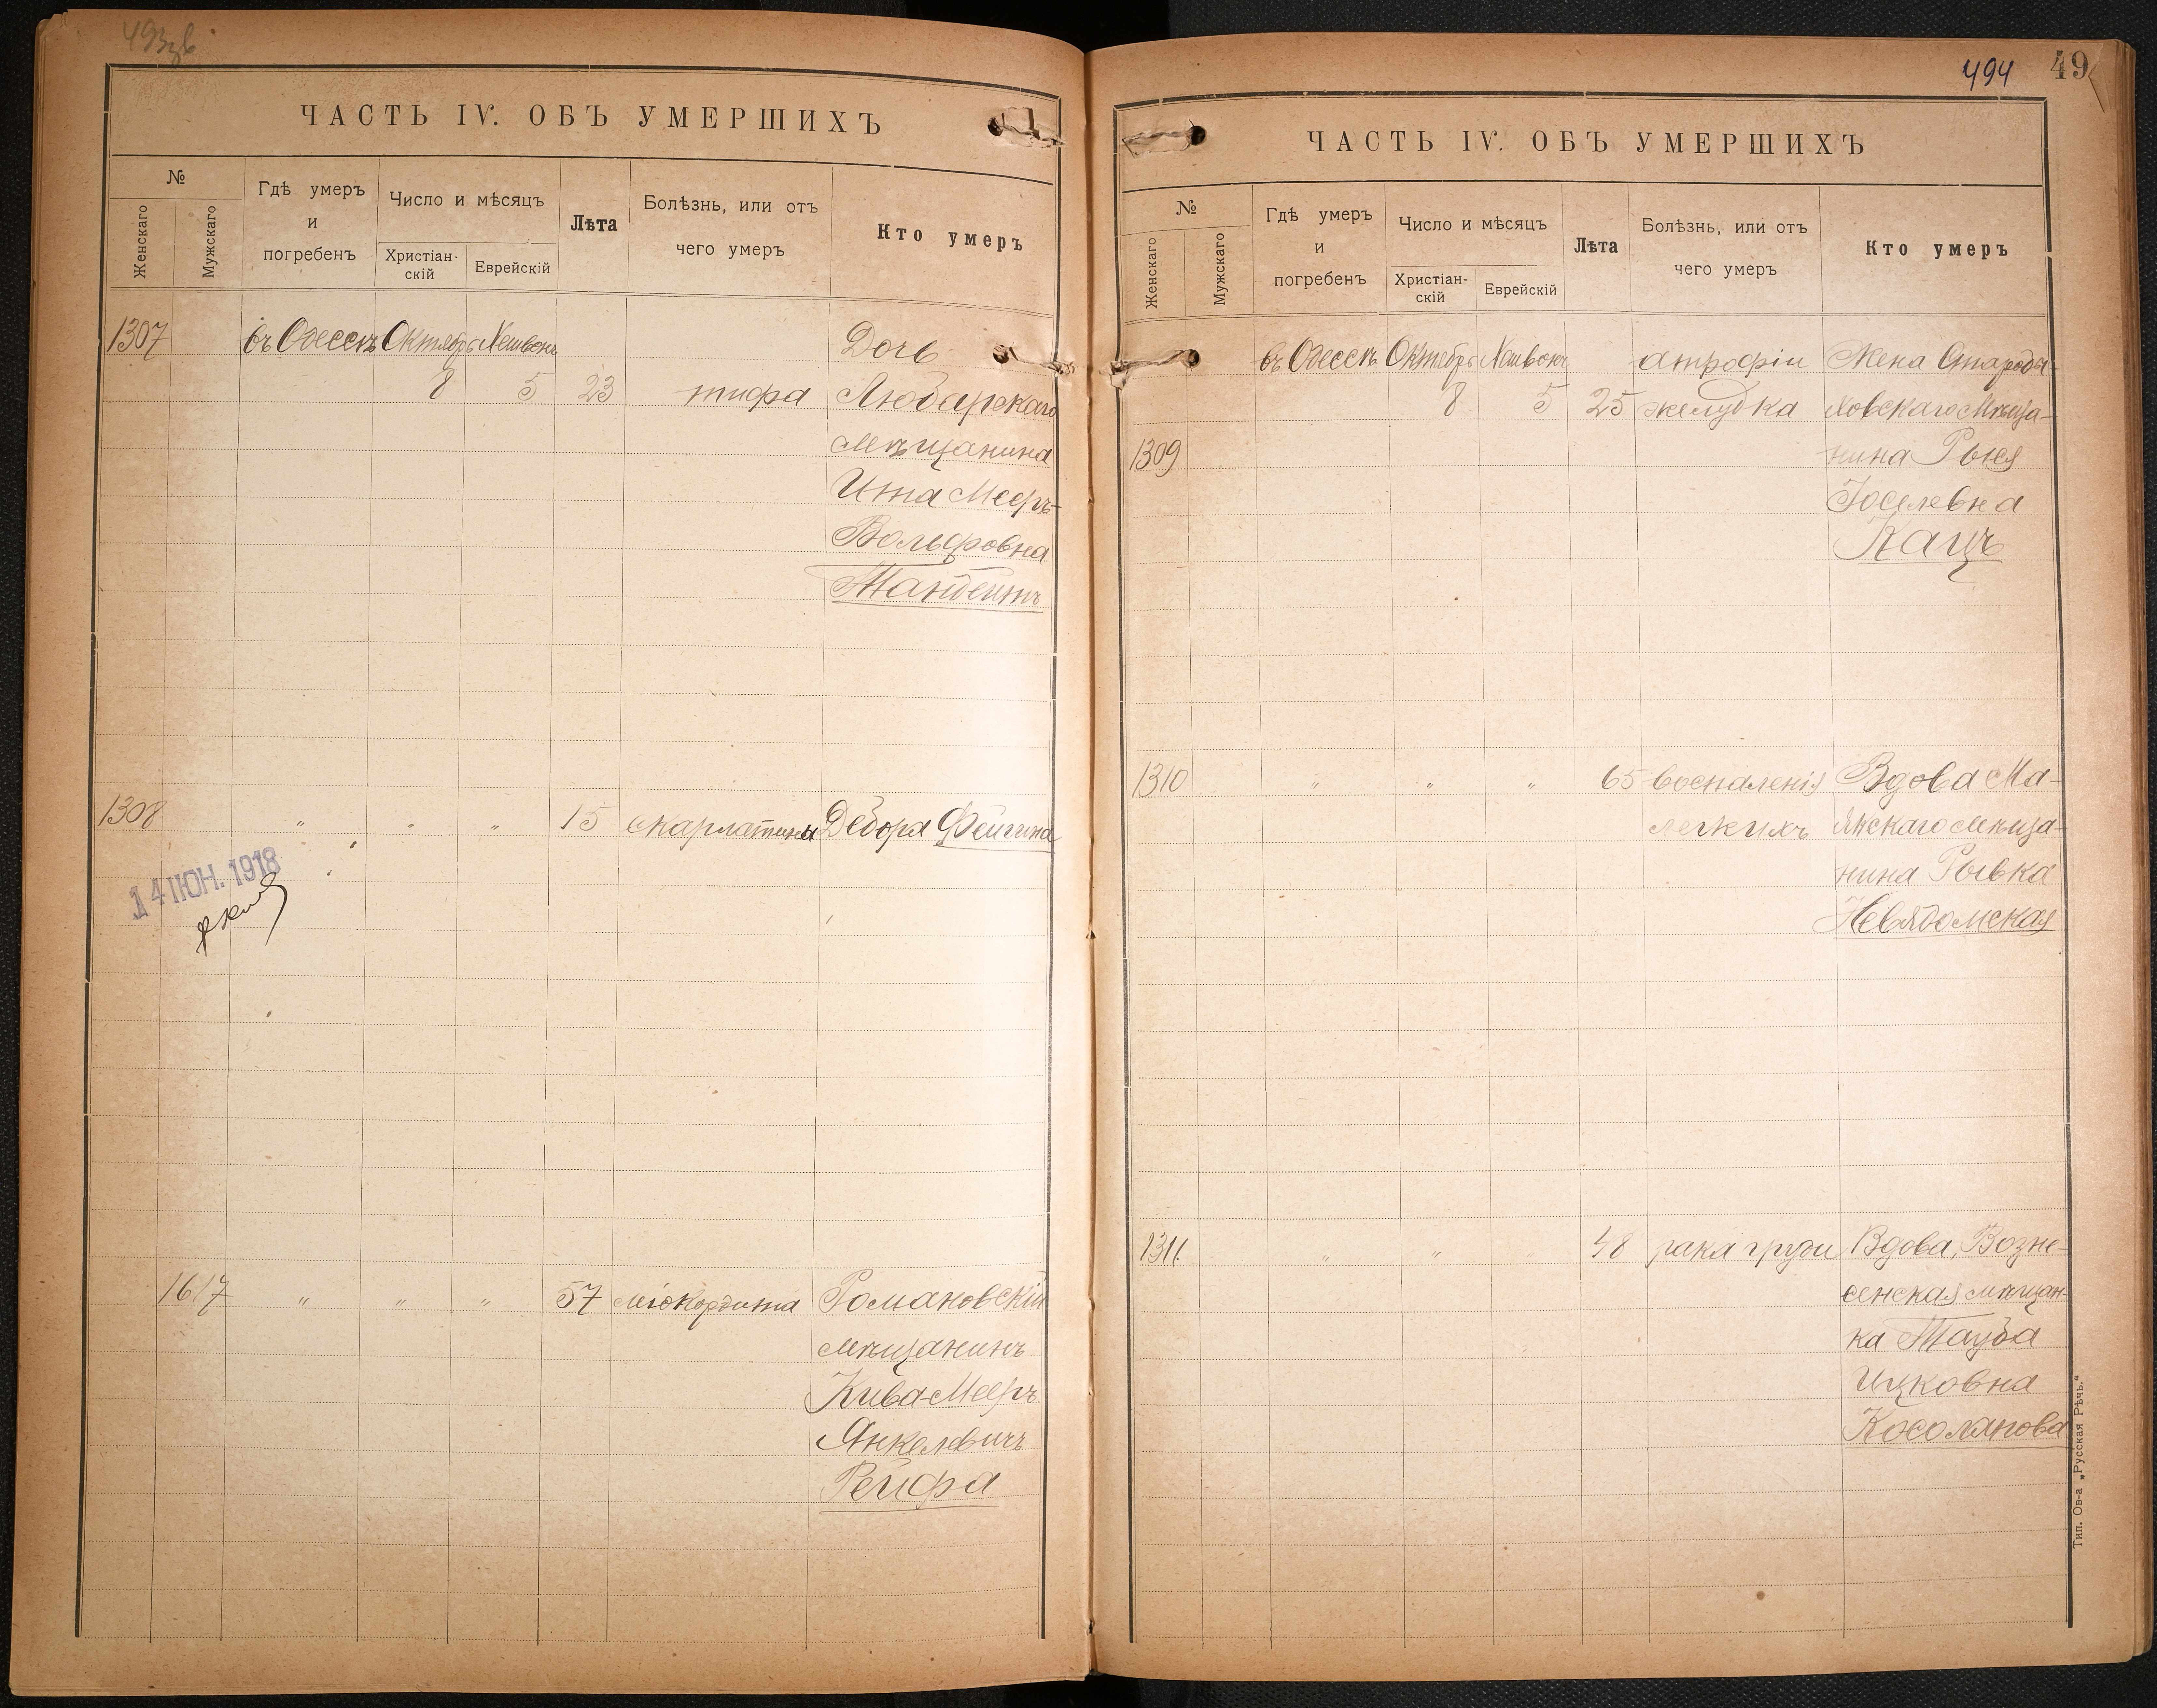 493зв
ЧАСТЬ IV. ОБЪ УМЕРШИХЪ
№
Женскаго
Мужскаго
Гдѣ умеръ
и
погребенъ
Число и мѣсяцъ
Христіан-
скій
Еврейскій
Лѣта
Болѣзнь, или отъ
чего умеръ
Кто умеръ
1307 въ Одессѣ Октябрь Хешвонъ Дочь
8 5 23 тифа Любарскаго
мѣщанина
Ита Мееръ-
Вольфовна
Танбейтъ
1308 " " " 15 скарлатины Дебора Фейгина
14 ІЮН. 1918
1617 " " " 57 міокардита Романовскій
мѣщанинъ
Кива-Мееръ
Янкелевичъ
Рейфа
494
49
ЧАСТЬ IV. ОБЪ УМЕРШИХЪ
№
Женскаго
Мужскаго
Гдѣ умеръ
и
погребенъ
Число и мѣсяцъ
Христіан-
скій
Еврейскій
Лѣта
Болѣзнь, или отъ
чего умеръ
Кто умеръ
въ Одессѣ Октябрь Хешвонъ атрофіи Жена
8 5 25 желудка ковскаго мѣща-
1309 нина Рыся
Іоселевна
Кацъ
1310 " " " 65 воспаленія Вдова Ма-
легкихъ яжскаго мѣща-
нина Рывка
Невядомская
1311 " " " 48 рака груди Вдова, Возне-
сенская мѣщан-
ка Тауба
Ицковна
Косолапова
Тип. Ов-а „Русская Рѣчь.“